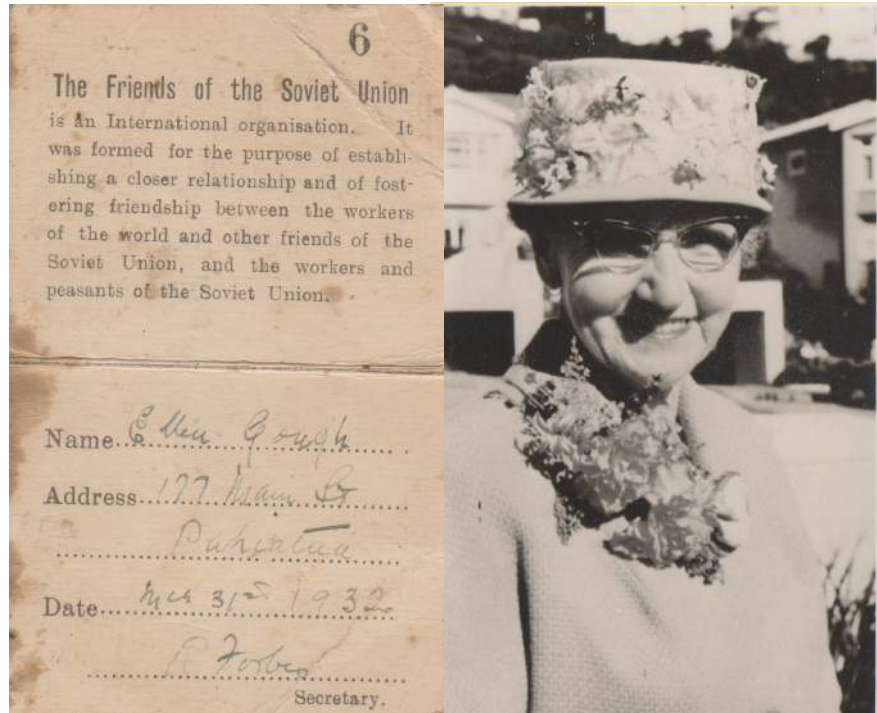 6
The Friends of the Soviet Union
is an International organisation. It
was formed for the purpose of establi-
shing a closer relationship and of fost-
ering friendship between the workers
of the world and other friends of the
Soviet Union, and the workers and
peasants of the Soviet Union.
Name Ellen Gough
Address 177 Main St
Pahiatua
Date 31st 1932
R Forbes
Secretary.